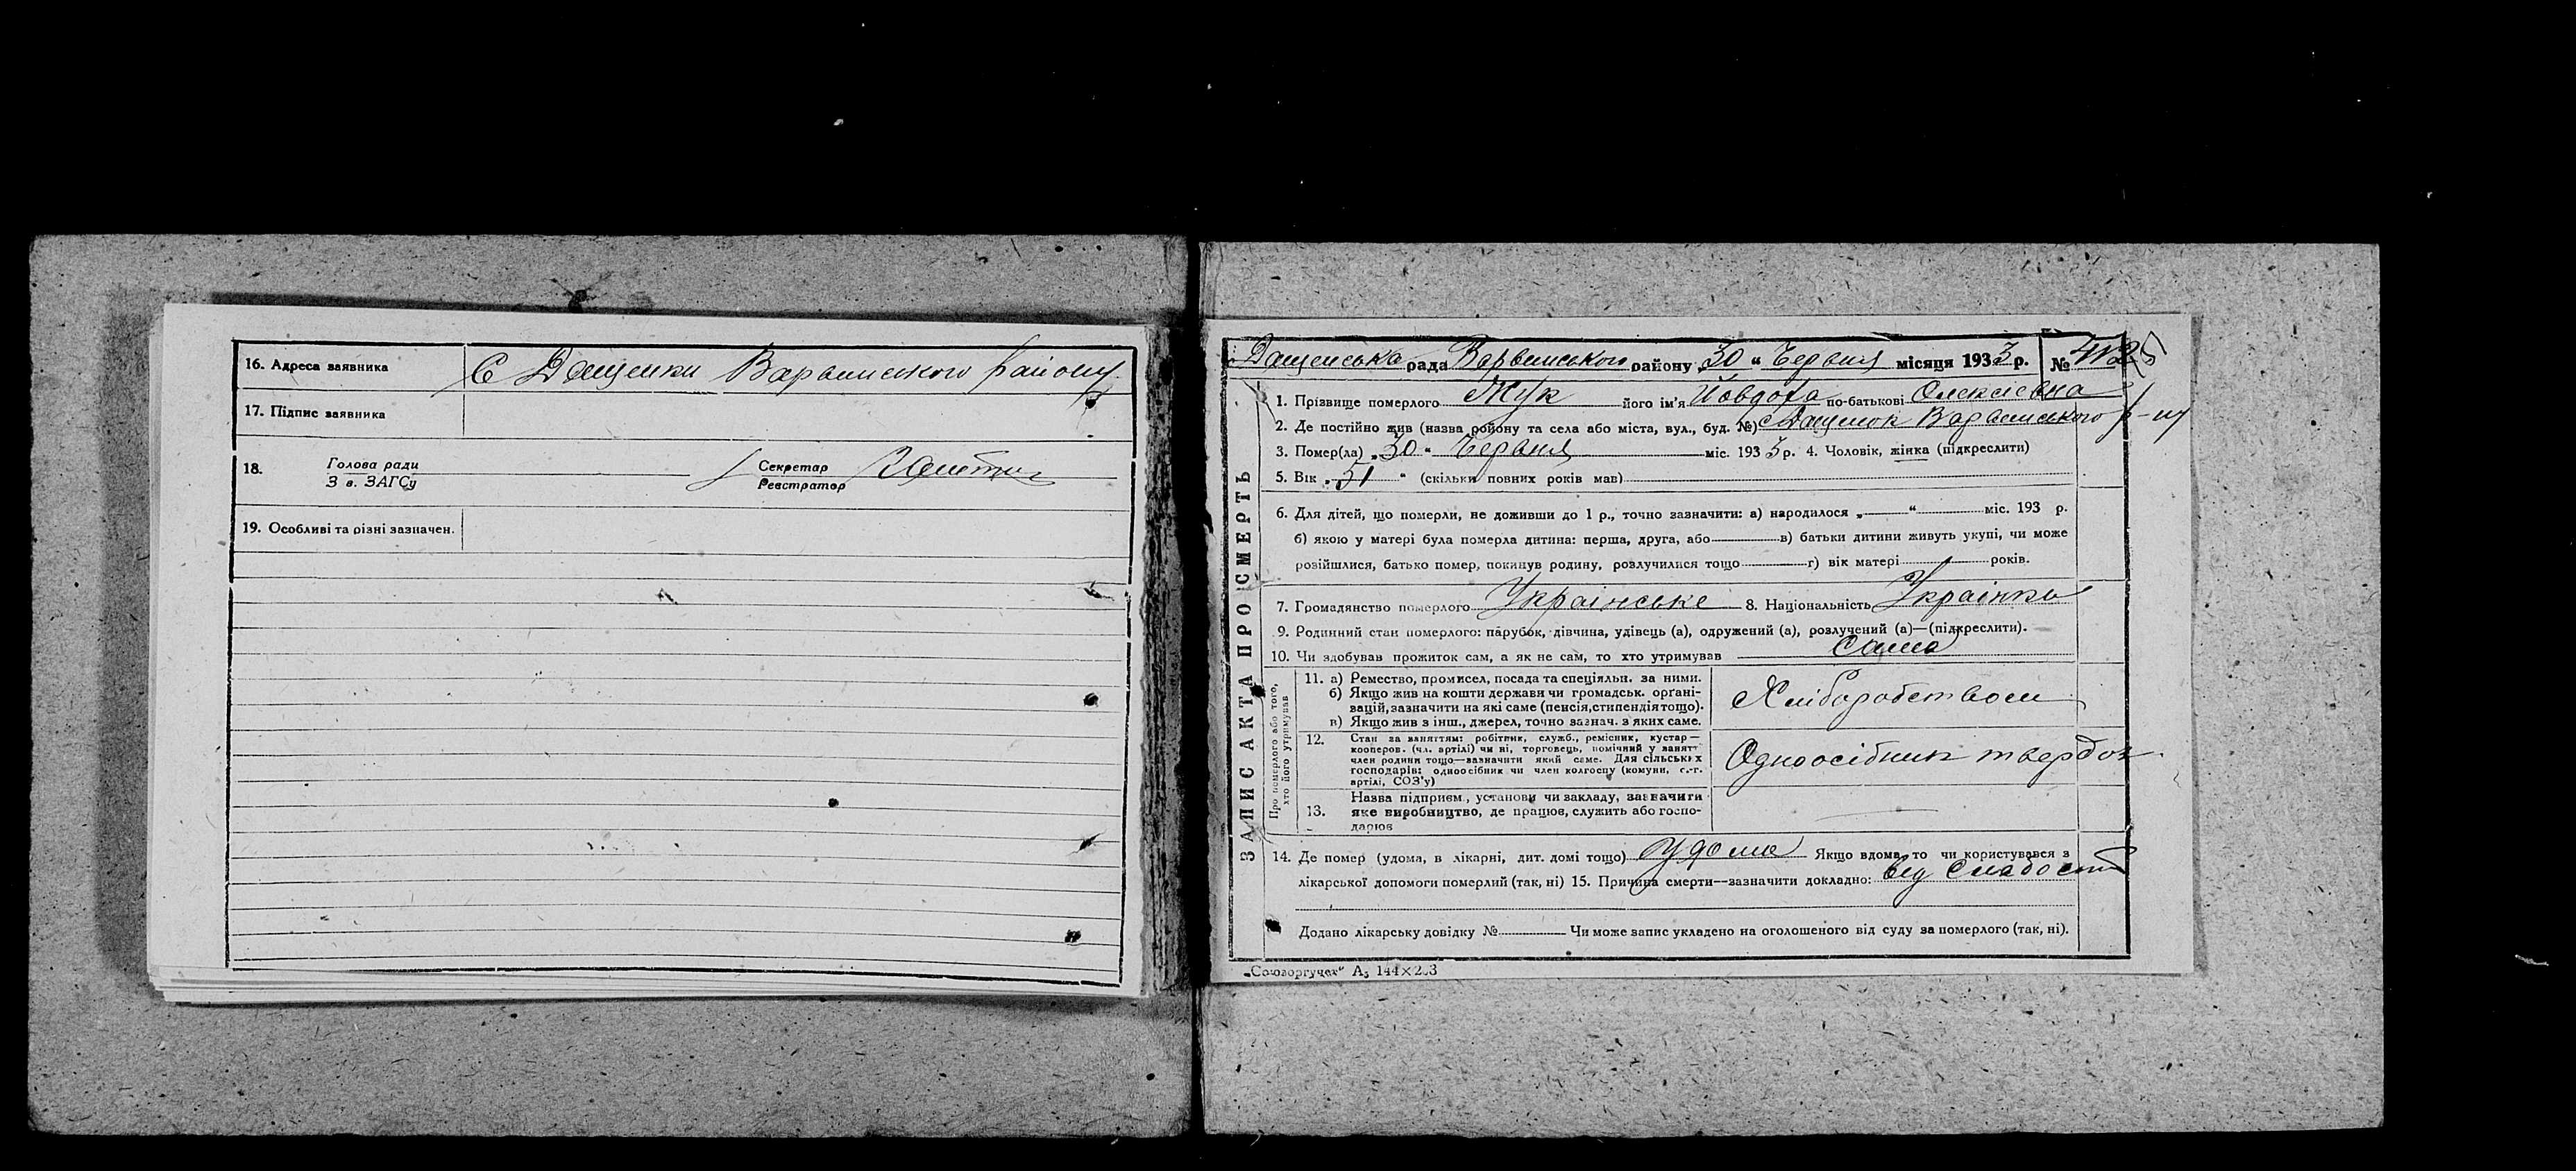 16. Адреса заявника С Дащенки Варвинського району
17. Підпис заявника
18. Голова ради Секретар
З в. ЗАГСу Реєстратор
19. Особливі та різні зазначен.
ЗАПИС АКТА ПРО СМЕРТЬ
Дащенська рада Варвинського району „30“ Червня місяця 1933 р. №
1. Прізвище померлого Жук його ім'я Йовдоха по-батькові Олексієвна
2. Де постійно жив (назва району та села або міста, вул., буд. №) с Дащенок Варвинського р-ну
3. Помер(ла) „30“ Червня міс. 1933 р. 4. Чоловік, жінка (підкреслити)
5. Вік „51“ (скільки повних років мав)
6. Для дітей, що померли, не доживши до 1 р., точно зазначити: а) народилося „ “ міс. 193 р.
б) якою у матері була померла дитина: перша, друга, або в) батьки дитини живуть укупі, чи може
розійшлися, батько помер, покинув родину, розлучилися тощо г) вік матері років.
7. Громадянство померлого Українське 8. Національність Українка
9. Родинний стан померлого: парубок, дівчина, удівець (а), одружений (а), розлучений (а)—(підкреслити).
10. Чи здобував прожиток сам, а як не сам, то хто утримував Сама
Про померлого або того,
хто його утримував
11. а) Ремество, промисел, посада та спеціяльн. за ними.
б) Якщо жив на кошти держави чи громадськ. органі-
зацій, зазначити на які саме (пенсія, стипендія тощо).
в) Якщо жив з інш., джерел, точно зазнач. з яких саме.
Хліборобством
12. Стан за заняттям: робітник, служб., ремісник, кустар—
кооперов. (чл. артілі) чи ні, торговець, помічний у занятт
член родини тощо—зазначити який саме. Для сільських
господарів: одноосібник чи член колгоспу (комуни, с.-г.
артілі, СОЗ'у)
Одноосібник твердоз
13. Назва підприєм., установи чи закладу, зазначити
яке виробництво, де працює, служить або госпо-
дарює
14. Де помер (удома, в лікарні, дит. домі тощо) У доме Якщо вдома, то чи користувався з
лікарської допомоги померлий (так, ні) 15. Причина смерти—зазначити докладно: від Слабости
Додано лікарську довідку № Чи може запис укладено на оголошеного від суду за померлого (так, ні).
„Союзоргучет“ А₅ 144×203